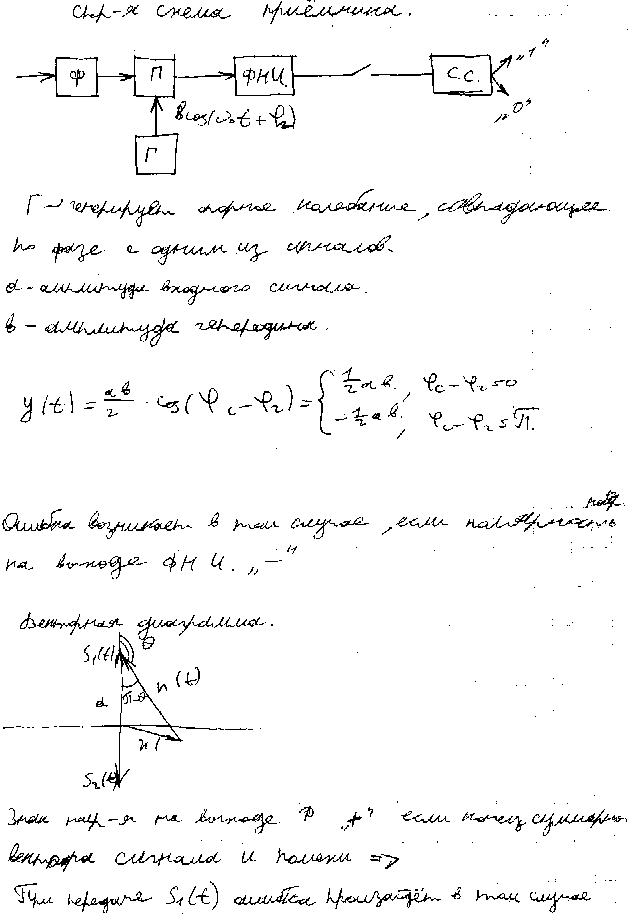 стр-я схема приёмника.
Ф П ФНЧ С.С. „1“
„0“
Bcos(ω₀t + φ₂)
Г
Г → генерирует опорное колебание, совпадающее
по фазе с одним из сигналов.
a - амплитуда входного сигнала.
b - амплитуда гетеродина.
y(t) = ab/2 · cos(φc - φ₂) = { ½ab, φc - φ₂ = 0
-½ab, φc - φ₂ = π.
напр.
Ошибка возникает в том случае, если полярность
на выходе ФНЧ „−“
Векторная диаграмма.
S₁(t) θ
a π-θ n(t)
S₂(t)
Знак напр-я на выходе „+“ если конец суммарно
вектора сигнала и помехи =>
При передаче S₁(t) ошибка произойдёт в том случае